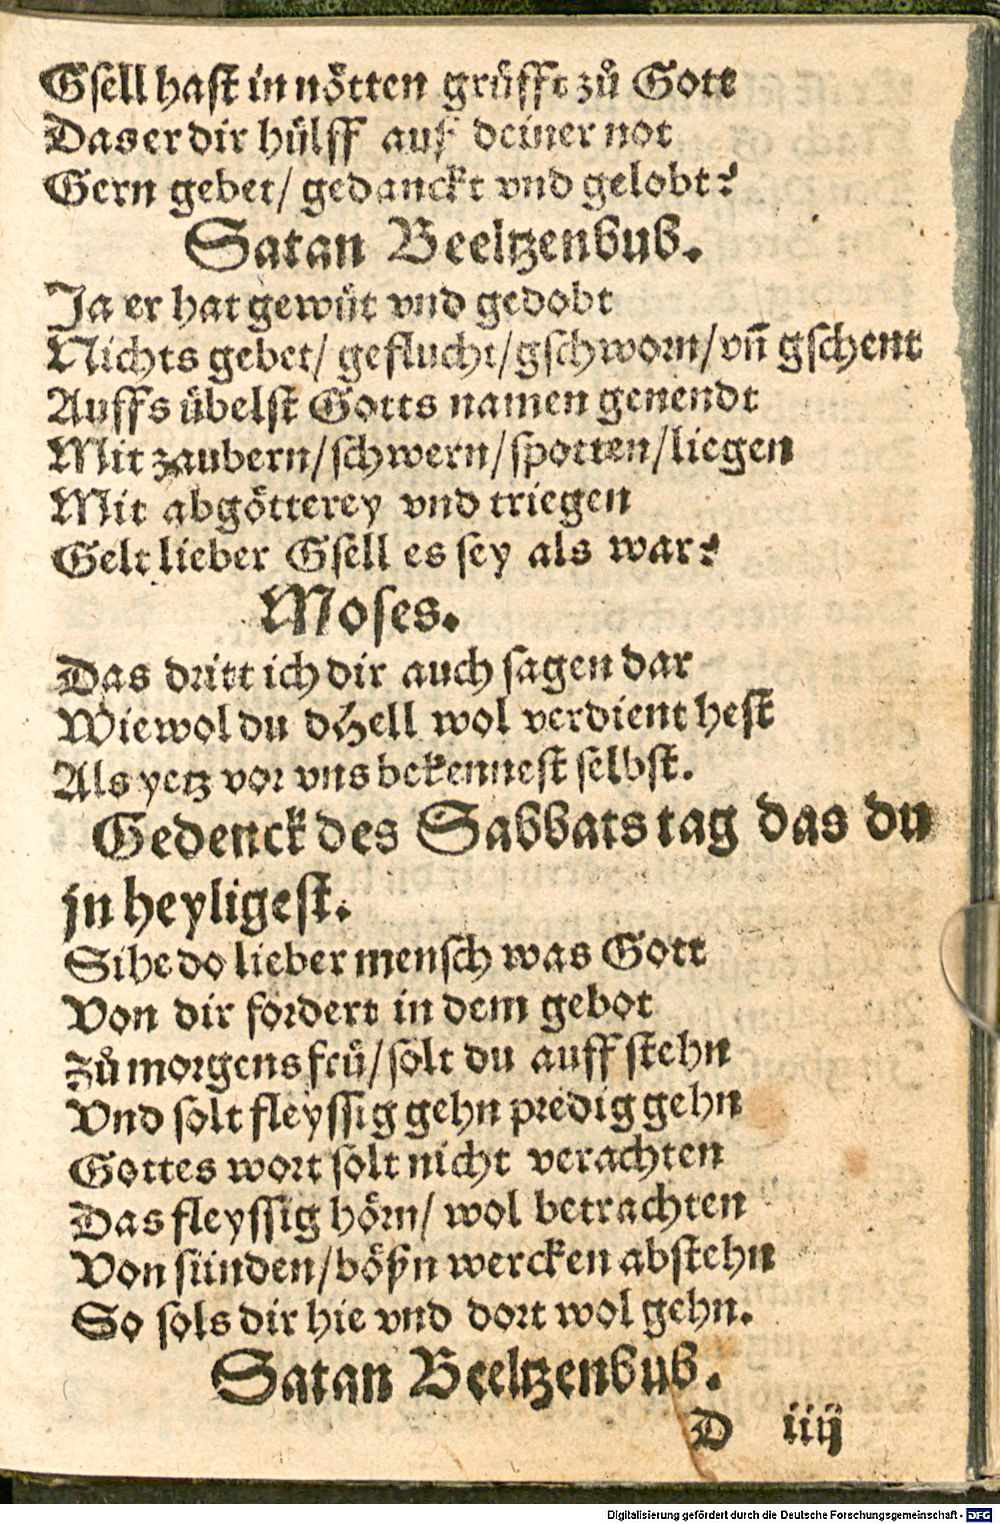 Gsell hast in nötten grüfft zů Gott
Das er dir hülff auß deiner not
Gern gebet/ gedanckt vnd gelobt?
Satan Beeltzenbub.
Ja er hat gewüt vnd gedobt
Nichts gebet/ geflucht/ gschworn/ vn̄ gschent
Auffs übelst Gotts namen genendt
Mit zaubern/ schwern/ spotten/ liegen
Mit abgötterey vnd triegen
Gelt lieber Gsell es sey als war?
Moses.
Das dritt ich dir auch sagen dar
Wiewol du dHell wol verdient hest
Als yetz vor vns bekennest selbst.
Gedenck des Sabbats tag das du
jn heyligest.
Sihe do lieber mensch was Gott
Von dir fordert in dem gebot
Zů morgens frü/ solt du auff stehn
Vnd solt fleyssig gehn predig gehn
Gottes wort solt nicht verachten
Das fleyssig hörn/ wol betrachten
Von sünden/ bößn wercken abstehn
So sols dir hie vnd dort wol gehn.
Satan Beeltzenbub.
D iiij
Digitalisierung gefördert durch die Deutsche Forschungsgemeinschaft - DFG